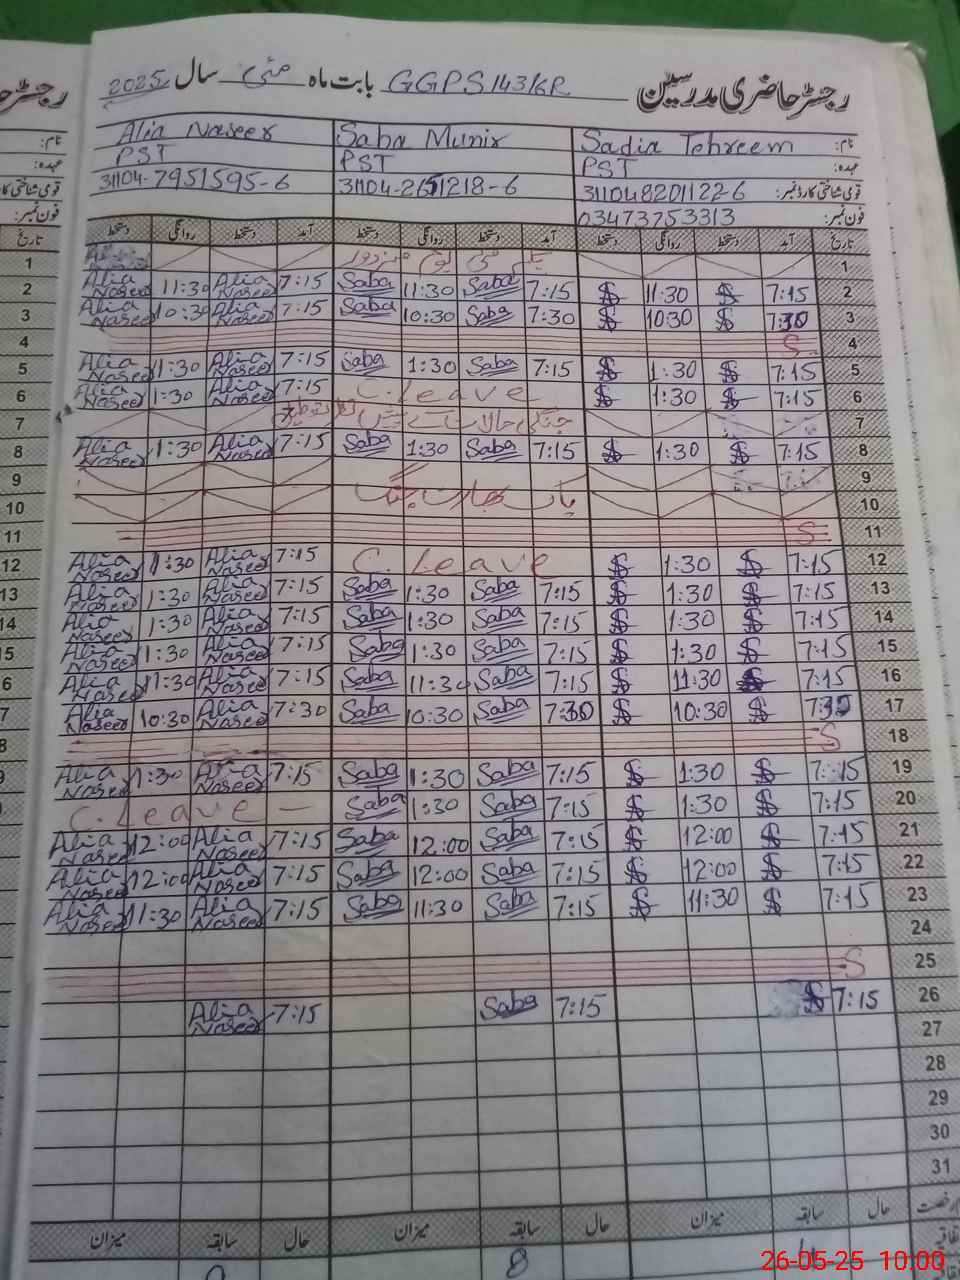 رجسٹر حاضری مدرسین GGPS 143/6R بابت ماہ مئی سال 2025
نام: Sadia Tehreem Saba Munir Alia Naseer
عہدہ: PST PST PST
قومی شناختی کارڈ نمبر: 311048201122-6 31104-2151218-6 31104-7951595-6
فون نمبر: 03473753313
تاریخ آمد دستخط روانگی دستخط آمد دستخط روانگی دستخط آمد دستخط روانگی دستخط
1 یکم مئی یوم مزدور
2 7:15 11:30 7:15 Saba 11:30 Saba 7:15 Alia Naseer 11:30 Alia Naseer
3 7:30 10:30 7:30 Saba 10:30 Saba 7:15 Alia Naseer 10:30 Alia Naseer
4 S
5 7:15 1:30 7:15 Saba 1:30 Saba 7:15 Alia Naseer 11:30 Alia Naseer
6 7:15 1:30 C. Leave 7:15 Alia Naseer 1:30 Alia Naseer
7 جنگی حالات کے پیش
8 7:15 1:30 7:15 Saba 1:30 Saba 7:15 Alia Naseer 1:30 Alia Naseer
9
10 پاک بھارت جنگ
11 S
12 7:15 1:30 C. Leave 7:15 Alia Naseer 1:30 Alia Naseer
13 7:15 1:30 7:15 Saba 1:30 Saba 7:15 Alia Naseer 1:30 Alia Naseer
14 7:15 1:30 7:15 Saba 1:30 Saba 7:15 Alia Naseer 1:30 Alia Naseer
15 7:15 1:30 7:15 Saba 1:30 Saba 7:15 Alia Naseer 1:30 Alia Naseer
16 7:15 11:30 7:15 Saba 11:30 Saba 7:15 Alia Naseer 11:30 Alia Naseer
17 7:30 10:30 7:30 Saba 10:30 Saba 7:30 Alia Naseer 10:30 Alia Naseer
18 S
19 7:15 1:30 7:15 Saba 1:30 Saba 7:15 Alia Naseer 1:30 Alia Naseer
20 7:15 1:30 7:15 Saba 1:30 Saba C. Leave
21 7:15 12:00 7:15 Saba 12:00 Saba 7:15 Alia Naseer 12:00 Alia Naseer
22 7:15 12:00 7:15 Saba 12:00 Saba 7:15 Alia Naseer 12:00 Alia Naseer
23 7:15 11:30 7:15 Saba 11:30 Saba 7:15 Alia Naseer 11:30 Alia Naseer
24
25 S
26 7:15 7:15 Saba 7:15 Alia Naseer
27
28
29
30
31
حال سابقہ میزان حال سابقہ میزان حال سابقہ میزان
8
26-05-25 10:00